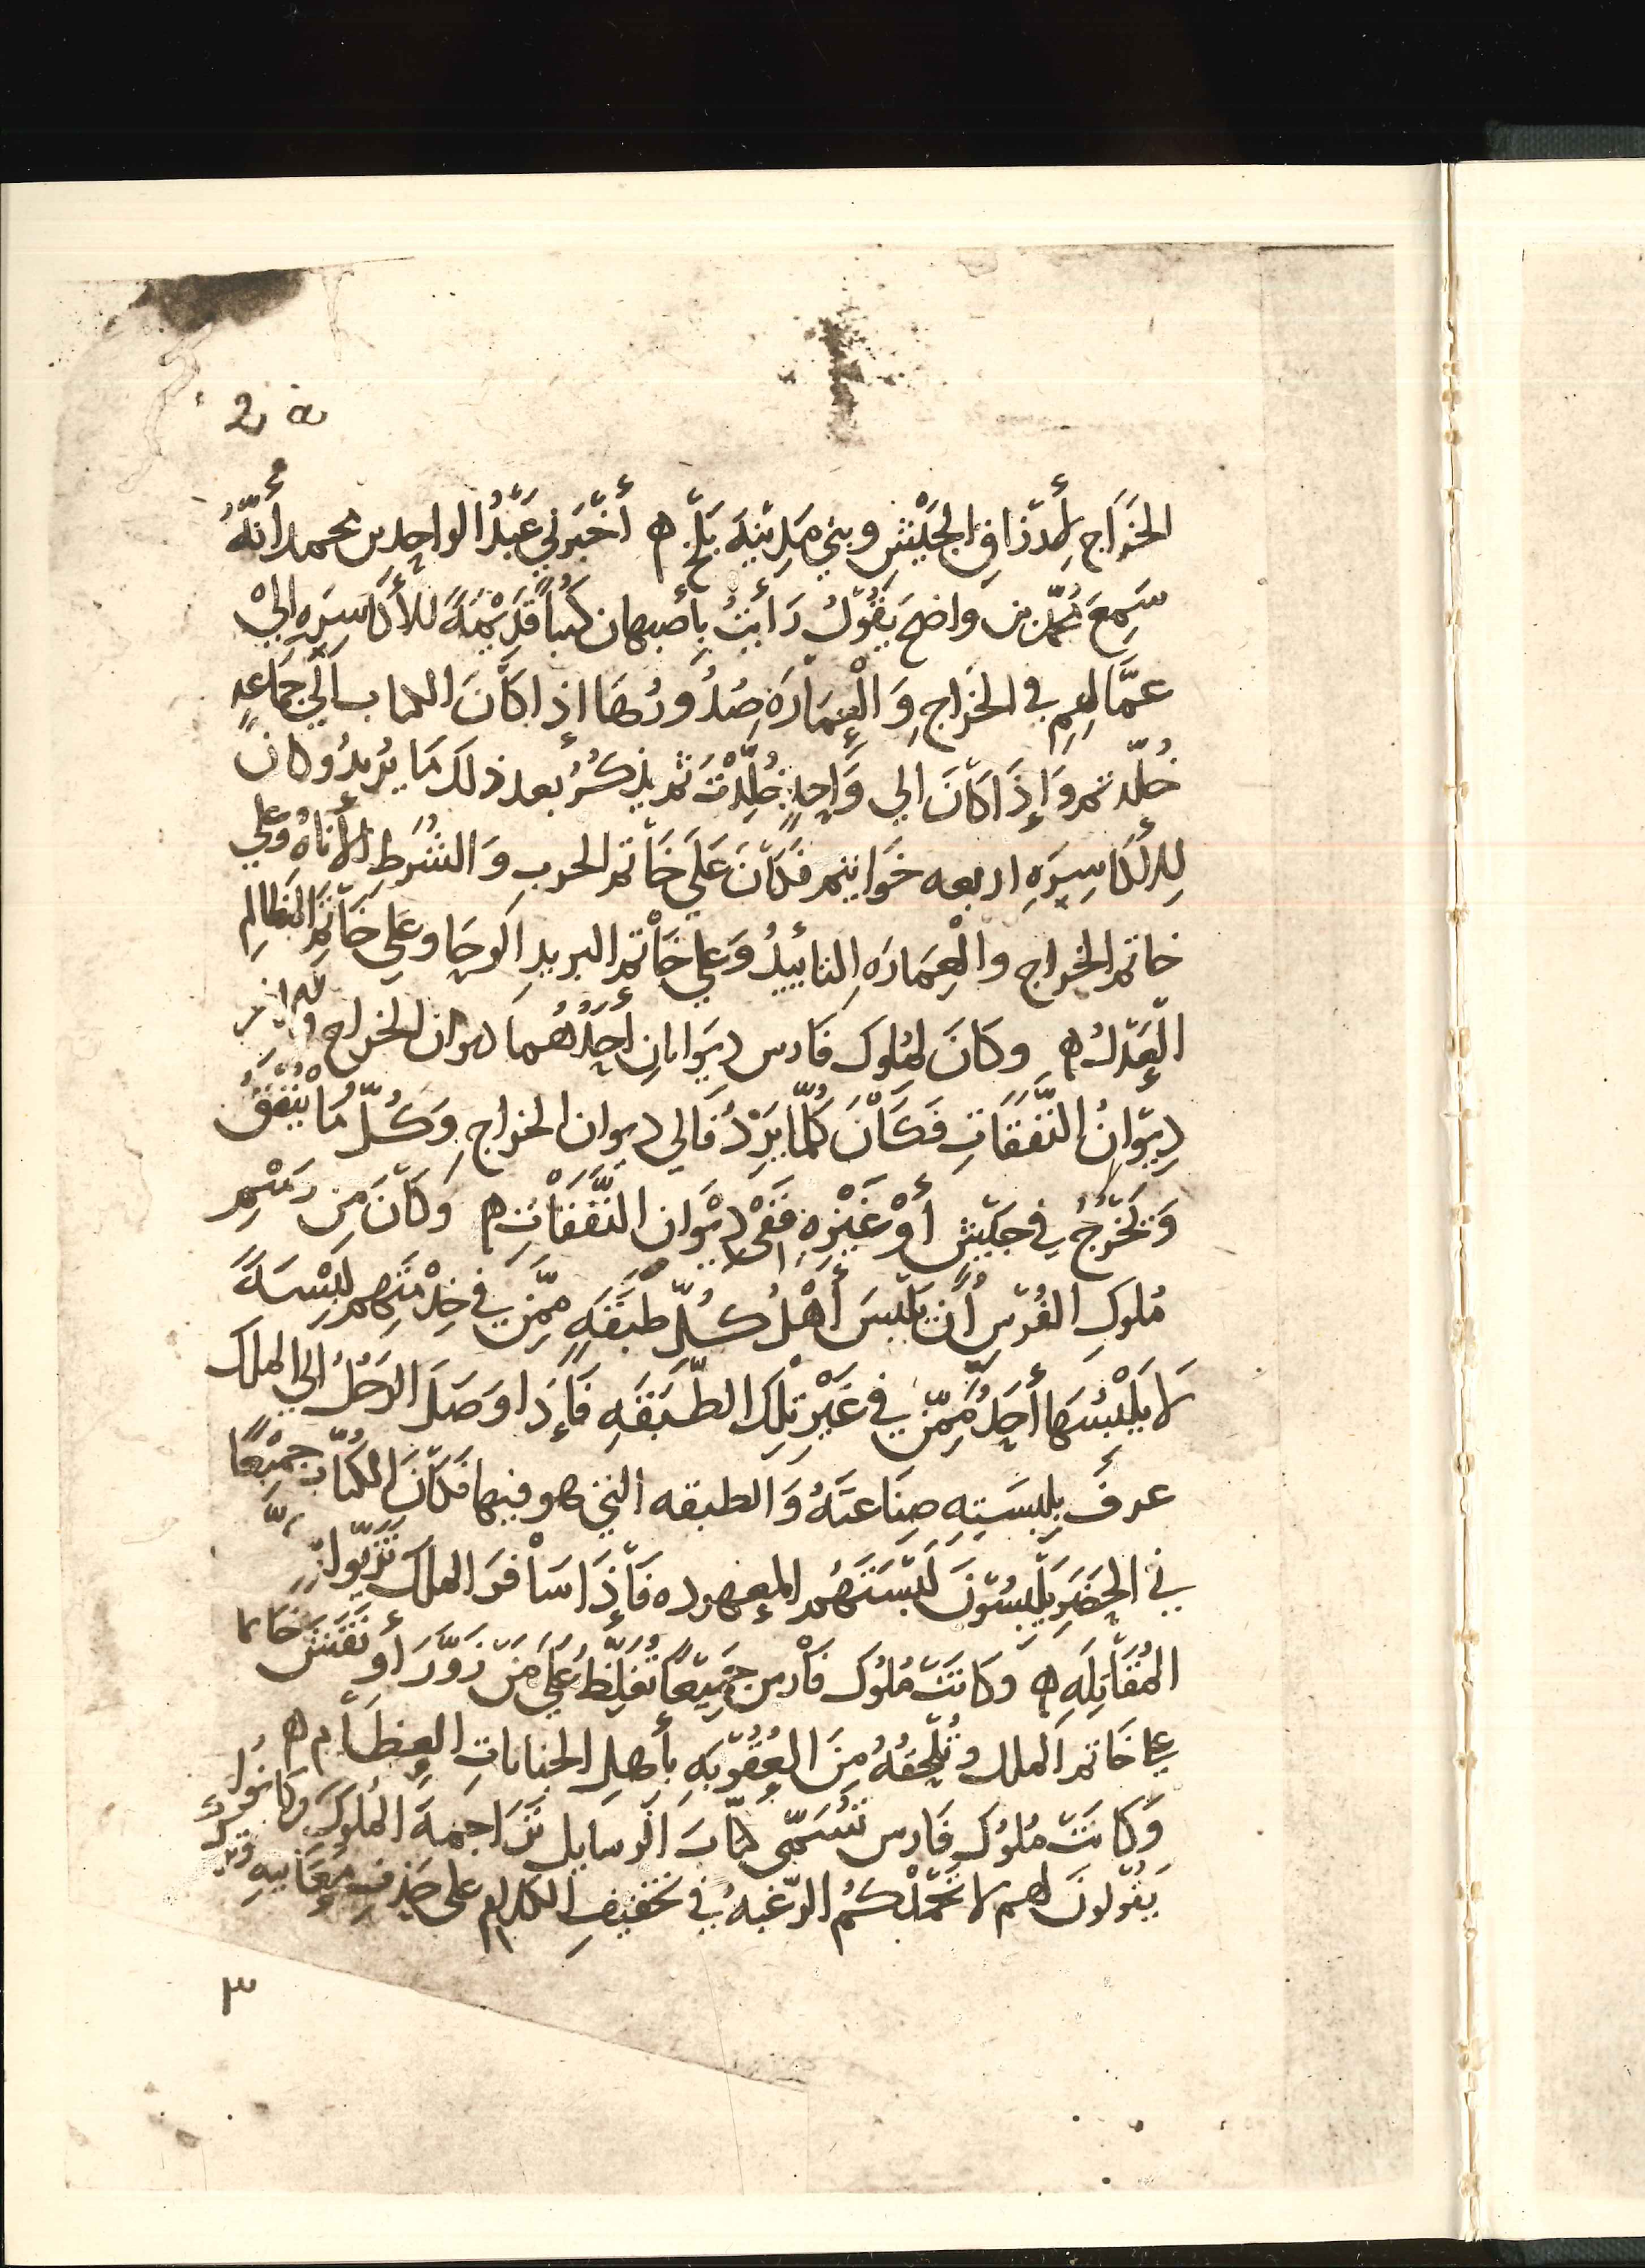 2 a
الخَرَاجِ لأِرزَاقِ الجَيْشِ وبني مَدِيْنَةَ بَلْخ ه أَخْبَرَنِي عَبْدُ الواحِدِ بن محمد أَنَّهُ
سَمِعَ مُحَمَّد بن وَاضح يَقُوْلُ رَأَيْتُ بِأَصبهان كتباً قَدِيْمَةً للأَكاسِرَةِ إِلىْ
عمَّالِهِم في الخَراجِ وَالْعِمَارَةِ صُدُورُهَا إذا كَانَ الكتاب إِلَي جَمَاعَةٍ
خُلِّدتم وَإِذَا كَانَ الي وَاحِدٍ خُلِّدْتَ ثم يذكُرُ بعد ذلكَ مَا يُرِيدُ وكان
لِلأَكَاسِرَةِ اربعه خَوَاتِيم فَكَانَ عَلَي خَاتم الحرب وَالشُرَطِ الأَناةُ وَعلي
خاتم الخراج والْعِمَارَةِ التأييدُ وَعَلي خَاتم البريد الوَحَا وعَلي خَاتم المَظَالِمِ
الْعَدْلُ ه وكَانَ لمُلوكِ فَارس دِيوَانانِ أَحَدُهُمَا ديوان الخراج والآخر
دِيْوَانُ النَّفَقَاتِ فَكَانَ كُلُّمَا يَرِدُ فَالي ديوان الخراجِ وَكُلُّ مَا يُنْفَقُ
وَيَخْرُجُ في جَيْشٍ أَوْ غَيْرِهِ فَفِي دِيْوَان النَّفَقَاتِ ه وَكَانَ مِن رَسْمِ
مُلوكِ الفُرْسِ أَن يَلْبَسَ أَهْلُ كُلِّ طَبَقَةٍ مِمَّن في خِدْمَتِهِم لِبْسَةً
لَا يَلْبَسُهَا أَحَدٌ مِمَّنْ في غَيْرِ تِلْكَ الطَّبَقَةِ فَإِذَا وَصَلَ الرَجُلُ إلي الملك
عرفَ بِلِبسَتِهِ صِنَاعَتَهُ وَالطبقه التي هو فيها فَكَانَ الكُتَّابُ جَمِيْعًا
في الحَضَرِ يَلْبَسُوْنَ لِبْسَتَهُم المعهوده فَإِذَا سَافَرَ الملكُ تَزَيَّوا
المُقَاتِلَةِ ه وَكَانَتْ مُلُوكُ فَارس جَمِيْعًا تُغَلِّظُ عَلَي مَنْ زَوَّرَ أو نَقَشَ خَاتما
علي خَاتم الملك وتُلْحِقُهُ مِنَ العُقُوبَةِ بِأَهلِ الجناياتِ العِظَامِ ه
وَكَانَتْ مُلُوكُ فَارس تُسَمِّي كتَّابَ الرسايل تَرَاجِمَةَ المُلُوكِ وكانوا
يَقُولونَ لهم لا تَحْمِلَنَّكُمُ الرَغبةُ في تخفيفِ الكلام على حَذفِ مَعَانيهِ وترك
٣